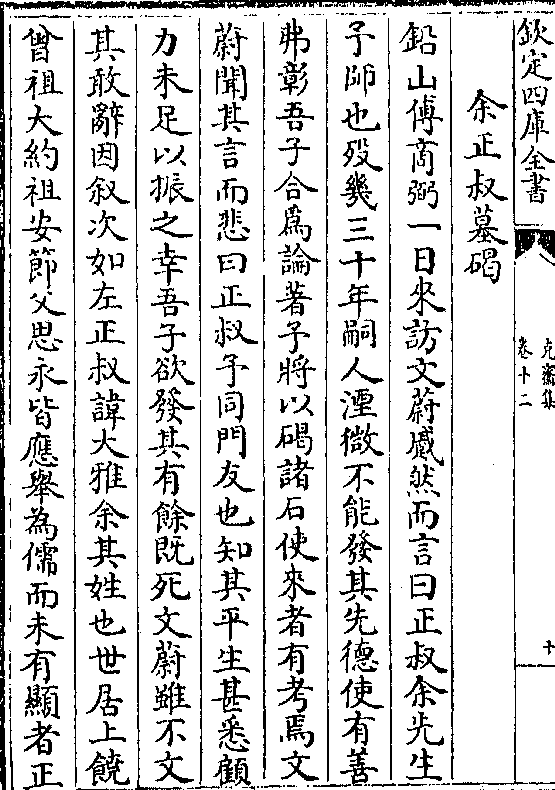 欽定四庫全書
克齋集
卷十二
十
余正叔墓碣
鉛山傅商弼一日來訪文蔚蹙然而言曰正叔余先生
予師也歿幾三十年嗣人湮微不能發其先德使有善
弗彰吾子合爲論著予將以碣諸石使來者有考焉文
蔚聞其言而悲曰正叔予同門友也知其平生甚悉顧
力未足以振之幸吾子欲發其有餘既死文蔚雖不文
其敢辭因叙次如左正叔諱大雅余其姓也世居上饒
曾祖大約祖安節父思永皆應舉為儒而未有顯者正